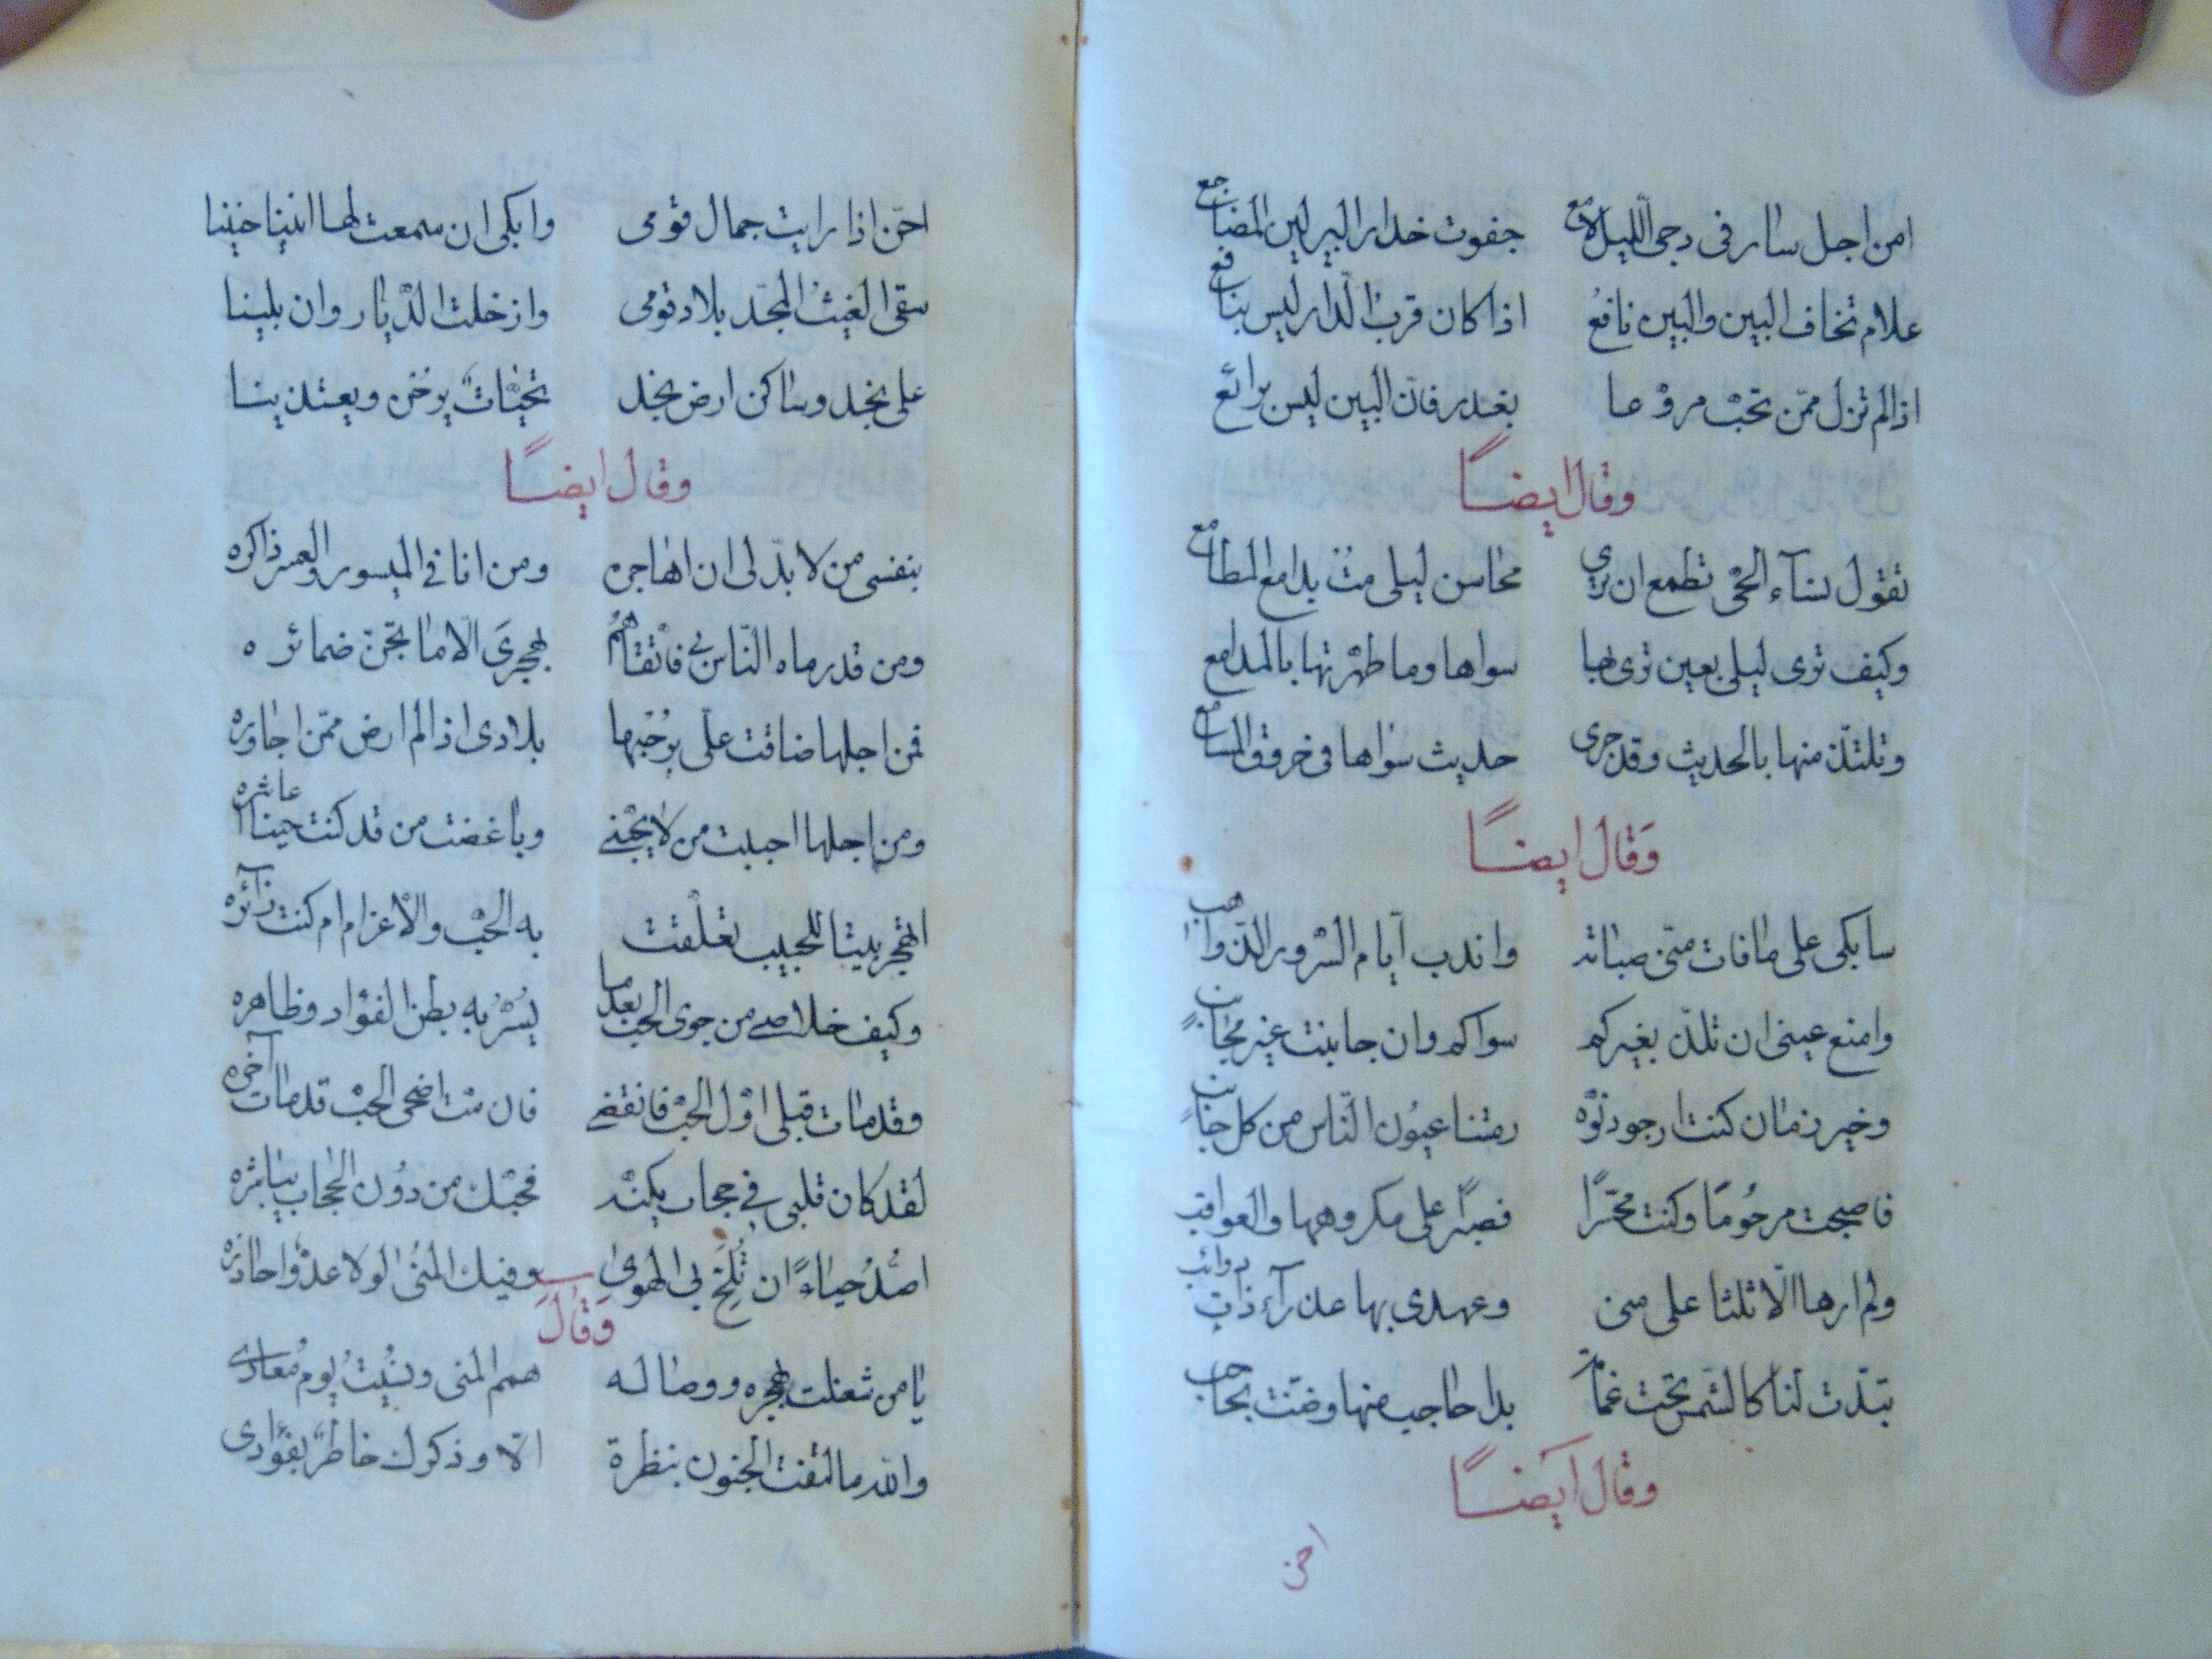 امن اجل سار فى دجى اللّيل لامع جفوت حذار البين لين المضاجع
علام تخاف البين والبين نافع اذا كان قرب الدّار ليس بنافع
اذا لم تزل ممّن تحبّ مروّعا بغدر فانّ البين ليس برائع
وقال ايضاً
تقول نسآء الحىّ تطمع ان ترى محاسن ليلى متْ بداء المطامع
وكيف ترى ليلى بعين ترى بها سواها وما طهّرتها بالمدامع
وتلتذّ منها بالحديث وقد جرى حديث سواها فى خروق المسامع
وَقال ايضاً
سابكى على ما فات منّى صبابة واندب ايّام السّرور الذّواهب
وامنع عينى ان تلذّ بغيركم سواكم وان جانبت غير مجانب
وخير زمان كنت ارجو دنوّه رمتنا عيون النّاس من كل جانب
فاصبحت مرحُومًا وكنت محسّدًا فصبرًا على مكروهها والعواقب
ولم ارها الّا ثلثا على منى وعهدى بها عذرآء ذات ذوائب
تبدّت لنا كالشّمس تحت غمامة بدا حاجب منها وضنّت بحاجب
وقال ايضاً
احن
احنّ اذا رايت جمال قومى وابكى ان سمعت لها انينا حنينا
سقى الغيثُ المجّد بلاد قومى وان خلت الدّيار وان بلينا
على نجد وساكن ارض نجد تحيّاتٌ يرحْن ويغتدينا
وقال ايضاً
بنفسى من لا بدّ لى ان اهاجره ومن انا فى الميسور والعسر ذاكره
ومن قد رماه النّاس بى فاتّقاهم لهجرىَ الّا ما تجنّ ضمائره
فمن اجلها ضاقت علّى برُحبها بلادى اذا لم ارض ممّن اجاوره
ومن اجلها احببت من لا يحبّنى وباغضت من قد كنت حينا اعاشره
اتهجر بيتا للحبيب تعلّقت به الحبّ والاعزام ام كنت زآئره
وكيف خلاصى من جوى الحب بعد ما يُسَرّ به بطن الفؤاد وظاهره
وقد مات قبلى اوّل الحبّ فانقضى فان متّ اضحى الحبّ قد مات آخره
لقد كان قلبى فى حجاب يكنّه فحبّك من دون الحجاب يباشره
اصُدّ حياءً ان تُلحّ بى الهوى وفيك المُنى لولا عدوّ احاذره
وَقال
يا من شغلت بهجره ووصاله همم المنى ونُسِيتُ يوم مُعادى
والله ما التقت الجفون بنظرة الّا وذكرك خاطرٌ بفؤادى